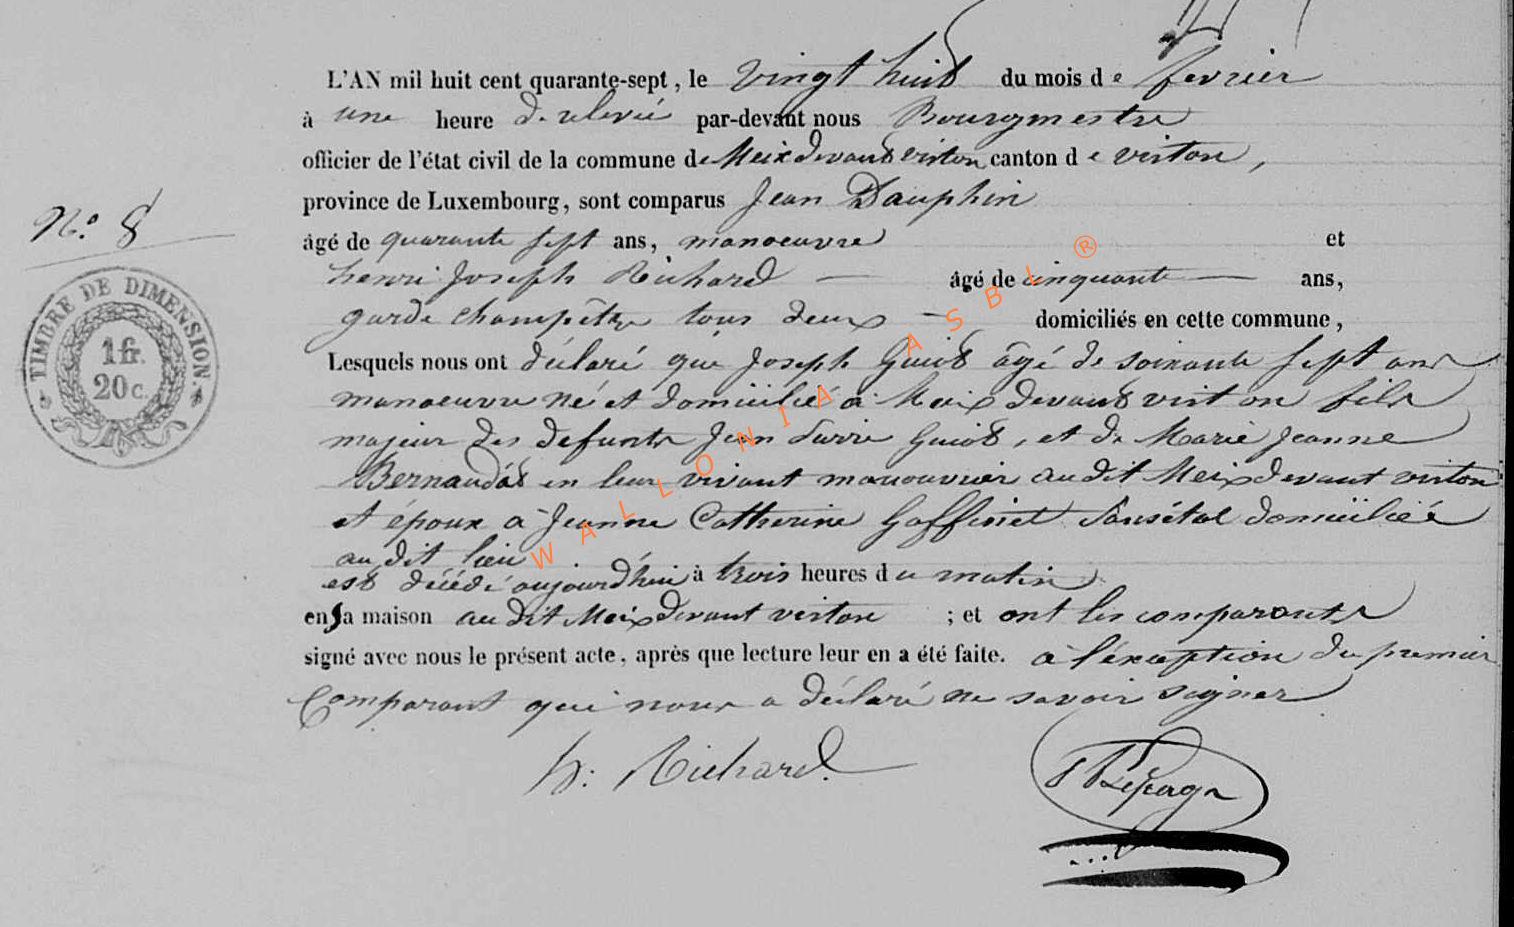 L'AN mil huit cent quarante-sept, le vingt huit du mois de fevrier
à une heure de relevée par-devant nous Bourgmestre
officier de l'état civil de la commune de Meix devant virton canton de virton,
province de Luxembourg, sont comparus Jean Dauphin
N.º 8
âgé de quarante sept ans, manoeuvre et
henri Joseph Richard âgé de cinquante ans,
garde champêtre tous deux domiciliés en cette commune,
TIMBRE DE DIMENSION.
1 fr.
20 c.
Lesquels nous ont déclaré que Joseph Guiot âgé de soixante sept ans
manoeuvre né et domicilié à Meix devant virton fils
majeur des defunts Jean Guiot, et de Marie Jeanne
en leur vivant manouvrier au dit Meix devant virton
et époux à Jeanne Catherine Goffinet domiciliée
au dit lieu
est décédé aujourd'hui à trois heures du matin
en sa maison au dit Meix devant virton ; et ont les comparants
signé avec nous le présent acte, après que lecture leur en a été faite. à l'exception du premier
Comparant qui nous a déclaré ne savoir signer
h. Richard.
WALLONIA ASBL ®